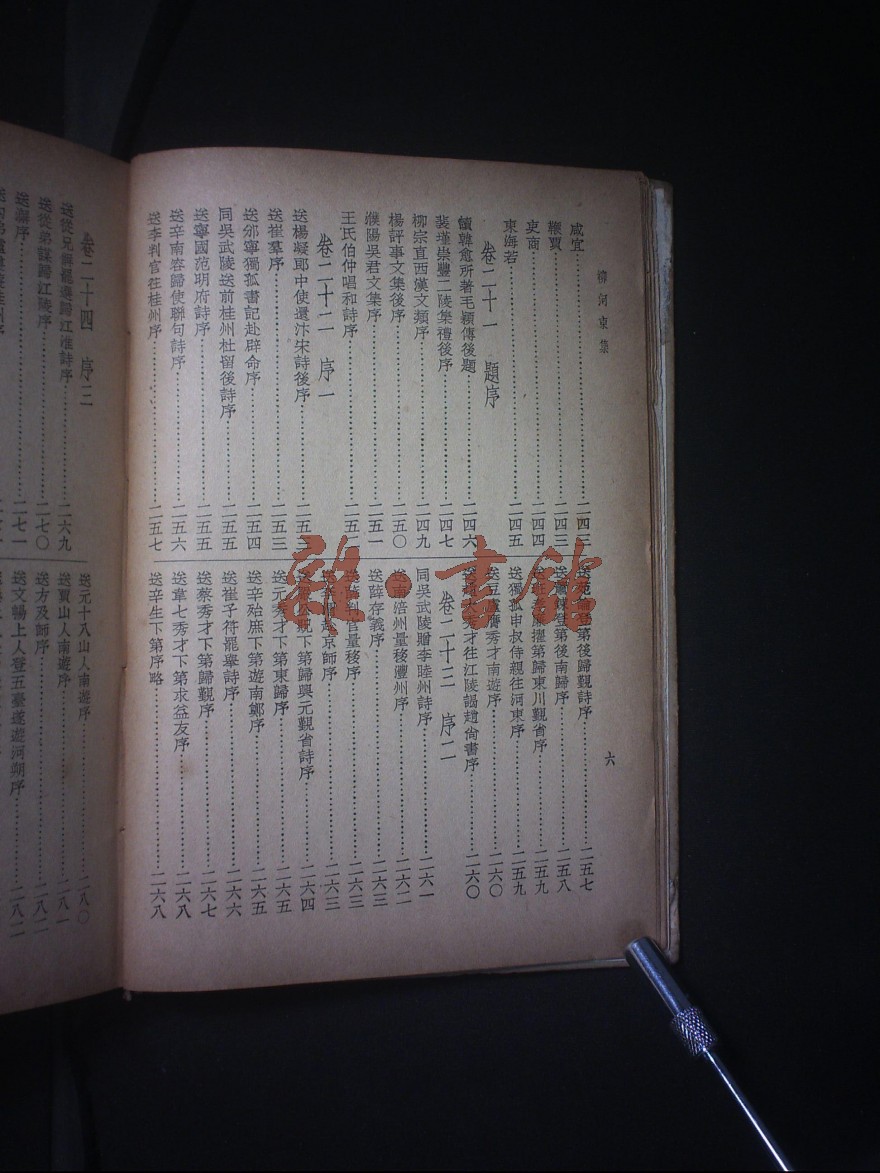 柳河東集
六
咸宜……二四三
鞭賈……二四三
吏商……二四四
東海若……二四五
卷二十一 題序
讀韓愈所著毛穎傳後題……二四六
裴墐崇豐二陵集禮後序……二四七
柳宗直西漢文類序……二四九
楊評事文集後序……二五〇
濮陽吳君文集序……二五一
王氏伯仲唱和詩序……二五二
卷二十二 序一
送楊凝郎中使還汴宋詩後序……二五三
送崔羣序……二五三
送邠寧獨孤書記赴辟命序……二五四
同吳武陵送前桂州杜留後詩序……二五五
送寧國范明府詩序……二五五
送辛南容歸使聯句詩序……二五六
送李判官往桂州序……二五七
登第後歸覲詩序……二五七
登第後南歸序……二五八
擢第歸東川覲省序……二五九
送獨孤申叔侍親往河東序……二五九
送豆盧膺秀才南遊序……二六〇
秀才往江陵謁趙尙書序……二六〇
卷二十三 序二
同吳武陵贈李睦州詩序……二六一
送南涪州量移澧州序……二六二
送薛存義序……二六三
判官量移序……二六三
赴京師序……二六三
下第歸興元覲省詩序……二六四
送元秀才下第東歸序……二六五
送辛殆庶下第遊南鄭序……二六五
送崔子符罷舉詩序……二六六
送蔡秀才下第歸覲序……二六七
送韋七秀才下第求益友序……二六八
送辛生下第序略……二六八
卷二十四 序三
送從兄偁罷選歸江淮詩序……二六九
送從弟謀歸江陵序……二七〇
送澥序……二七一
送元十八山人南遊序……二八〇
送賈山人南遊序……二八一
送方及師序……二八二
送文暢上人登五臺遂遊河朔序……二八二
雜·書館